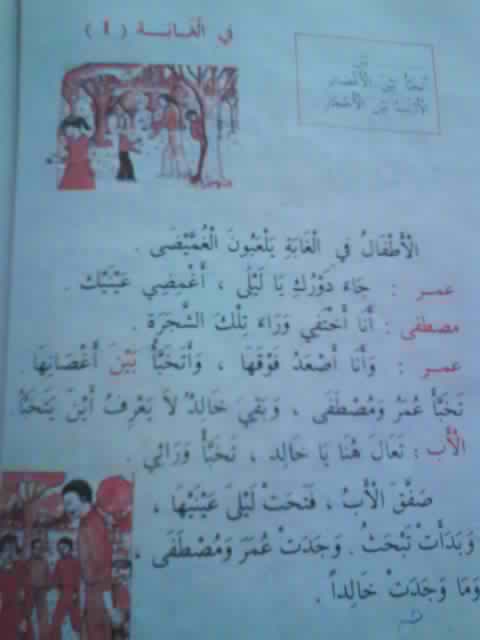 في الْغَابَـــة ( 1 )
تَخَبَّأَ بَيْنَ الْأَغْصَانِ
بَيْنَ الْأَشْجَارِ
الْأَطْفَالُ فِي الْغَابَةِ يَلْعَبُونَ الْغُمَّيْضَى .
عمـر : جَاءَ دَوْرُكِ يَا لَيْلَى ، أَغْمِضِي عَيْنَيْك .
مصطفى : أَنَا أَخْتَفِي وَرَاءَ تِلْكَ الشَّجَرَة .
عمـر : وَأَنَا أَصْعَدُ فَوْقَهَا ، وَأَتَخَبَّأُ بَيْنَ أَغْصَانِهَا .
تَخَبَّأَ عُمَرُ وَمُصْطَفَى ، وَبَقِيَ خَالِدٌ لاَ يَعْرِفُ أَيْنَ يَتَخَبَّأُ .
الْأَب : تَعَالَ هُنَا يَا خَالِد ، تَخَبَّأْ وَرَائِي .
صَفَّقَ الْأَبُ ، فَتَحَتْ لَيْلَى عَيْنَيْهَا ،
وَبَدَأَتْ تَبْحَثُ . وَجَدَتْ عُمَرَ وَمُصْطَفَى ،
وَمَا وَجَدَتْ خَالِداً .